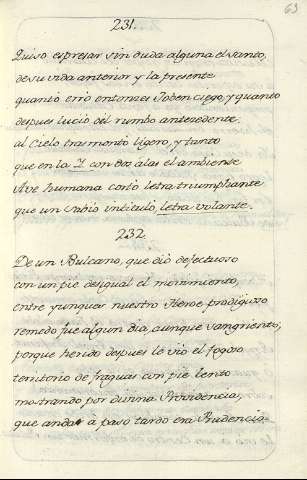 63
231.
Quiso espresar sin duda alguna el Santo,
de su vida anterior y la presente
quanto erró entonzes Joben ciego, y quanto
depues lució del rumbo antezedente.
al Cielo tramontó ligero, y tanto
que en la Y con dos alas el ambiente
Ave humana cortó letra triumphante
que un Sabio intituló, letra volante.
232.
De un Bulcano, que dió defectuoso
con un pie desigual el movimiento,
entre yunques nuestro Heroe prodigioso
remedo fue algun dia, aunque sangriento;
porque herido depues le vió el fogoso
territorio de fraguas con pie lento
mostrando por divina Providencia,
que andar á paso tardo era Prudencia.